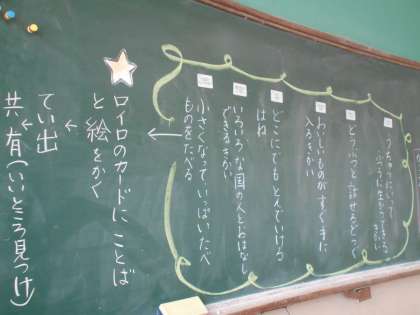 うちゅうにいって、
どうぶつと話せるどうぐ
ほしいものがすぐ手に
入るきかい
どこにでもとんでいける
はね
いろいろな国の人とおはなし
できるきかい
小さくなっていっぱいたべ
ものをたべる
← ロイロのカードに ことば
と 絵をかく
← てい出
← 共有(いいところ見つけ)